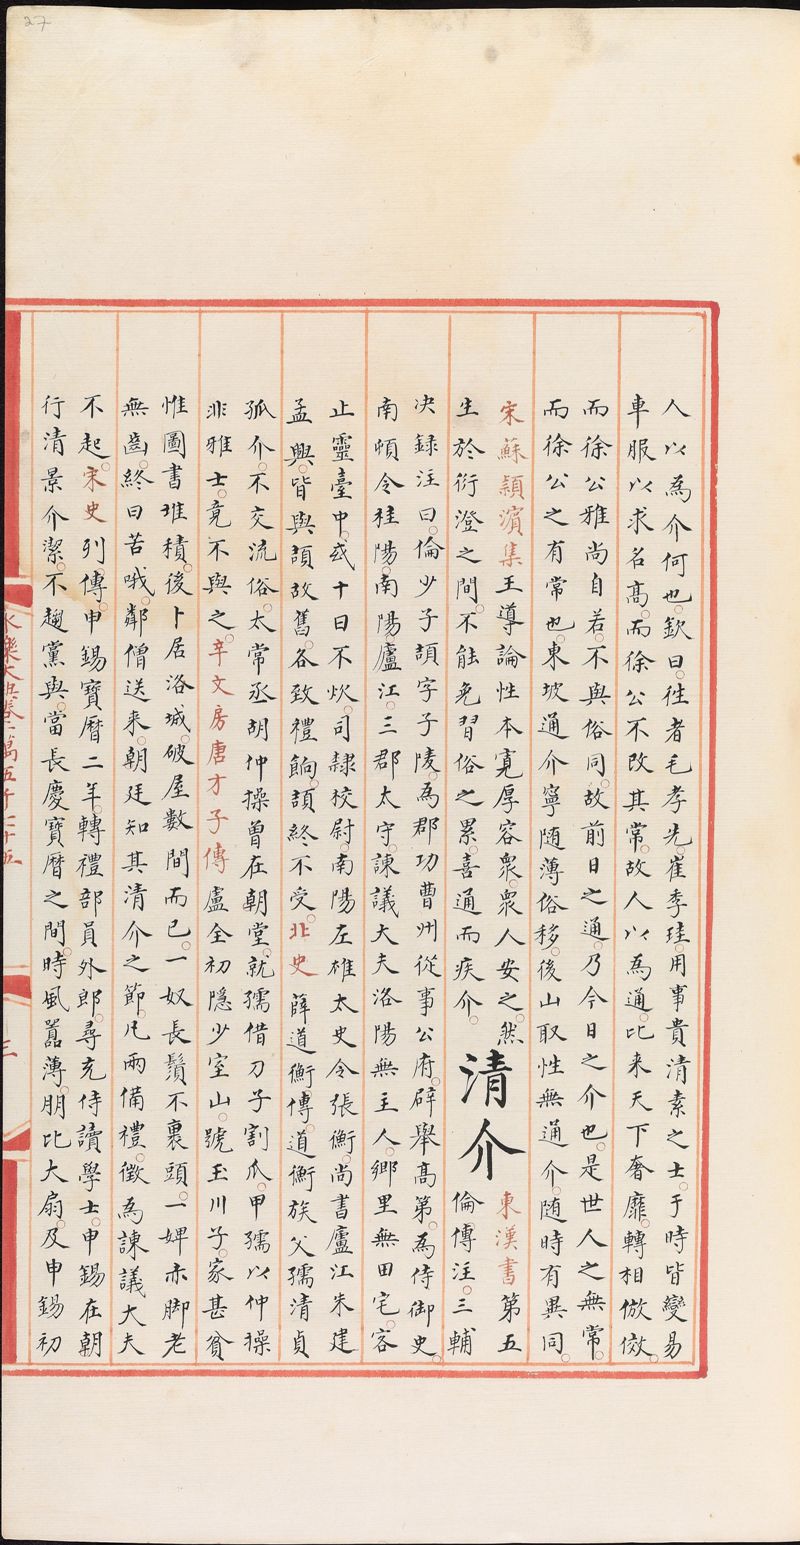 27
人以為介何也欽曰徃者毛孝先崔季珪用事貴清素之士于時皆變易
車服以求名高而徐公不改其常故人以為通比来天下奢靡轉相倣傚
而徐公雅尚自若不與俗同故前日之通乃今日之介也是世人之無常
而徐公之有常也東坡通介寧随薄俗移後山取性無通介随時有異同
宋蘇頴濵集王導論性本寛厚容衆衆人安之然
生於衍澄之間不能免習俗之累喜通而疾介
清介
東漢書第五
倫傳注三輔
决録注曰倫少子頡字子陵為郡功曹州從事公府辟舉高第為侍御史
南頓令桂陽南陽廬江三郡太守諫議大夫洛陽無主人鄉里無田宅客
止靈臺中或十日不炊司隸校尉南陽左雄太史令張衡尚書廬江朱建
孟興皆與頡故舊各致禮餉頡終不受北史薛道衡傳道衡族父孺清貞
孤介不交流俗太常丞胡仲操曽在朝堂就孺借刀子割瓜甲孺以仲操
非雅士竟不與之辛文房唐才子傳盧仝初隱少室山號玉川子家甚貧
惟圖書堆積後卜居洛城破屋數間而已一奴長鬚不裹頭一婢赤脚老
無齒終日苦哦鄰僧送米朝廷知其清介之節凡兩備禮徴為諫議大夫
不起宋史列傳申錫寶曆二年轉禮部員外郎尋充侍讀學士申錫在朝
行清景介潔不趨黨與當長慶寶曆之間時風囂薄朋比大扇及申錫初
永樂大典卷二萬五千二十五
三